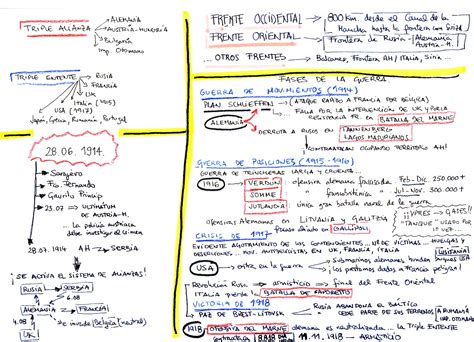 TRIPLE ALIANZA
ALEMANIA
AUSTRIA-HUNGRÍA
Bulgaria
Imp. Otomano
TRIPLE ENTENTE
RUSIA
FRANCIA
UK
Italia (1915)
USA (1917)
Japón, Grecia, Rumanía, Portugal
28.06.1914.
Sarajevo
Fco. Fernando
Gavrilo Princip
23.07 → ULTIMÁTUM
DE AUSTRIA-H.
... La policía austríaca
debe investigar el crimen
28.07.1914 AH → SERBIA
¡SE ACTIVA EL SISTEMA DE ALIANZAS!
RUSIA → SERBIA
6.08
ALEMANIA → FRANCIA
3.08
UK
Se invade Bélgica (neutral)
FRENTE OCCIDENTAL → 800 km. desde el Canal de la
Mancha hasta la frontera con Suiza
FRENTE ORIENTAL → Frontera de Rusia - Alemania
Austria-H.
... OTROS FRENTES → Balcanes, Frontera AH/ITALIA, Siria...
FASES DE LA GUERRA
GUERRA DE MOVIMIENTOS (1914)
PLAN SCHLIEFFEN → (ATAQUE RÁPIDO A FRANCIA POR BÉLGICA)
FALLA POR LA INTERVENCIÓN DE UK y FIERA
RESISTENCIA FR. en BATALLA DEL MARNE
ALEMANIA
DERROTA A RUSOS EN TANNENBERG
LAGOS MASURIANOS
CONTRAATACAN OCUPANDO TERRITORIO AH!
GUERRA DE POSICIONES (1915-1916)
GUERRA DE TRINCHERAS LARGA Y CRUENTA...
1916 → VERDÚN → ofensiva alemana fracasada Feb-Dic. 250.000 +
SOMME → " francobritánica - Jul-Nov. 300.000 +
JUTLANDIA → única gran batalla naval de la guerra
Ofensivas Alemanas en LITUANIA y GALITZIA
fracaso aliado en GALLIPOLI
¡¡YPRES → GASES!!
"TANQUE" USADO POR
CRISIS DE 1917
EVIDENTE AGOTAMIENTO DE LOS CONTENDIENTES... Nº DE VÍCTIMAS → HUELGAS y
DESERCIONES... MOV. ANTIBELICISTAS EN UK, FRANCIA, ITALIA
LUSITANIA
USA → entra en la guerra
Submarinos alemanes hundían buques USA
¡los préstamos dados a Francia peligran!
Revolución Rusa → armisticio → final del Frente Oriental
ITALIA pierde la BATALLA DE CAPORETTO
VICTORIA DE 1918
PAZ DE BREST-LITOVSK
RUSIA ABANDONA EL BÁLTICO
CEDE PARTE DE SUS TERRITORIOS A RUMANIA
1918 → OFENSIVA DEL MARNE alemana es neutralizada... La Triple ENTENTE
11.11.1918 → ARMISTICIO